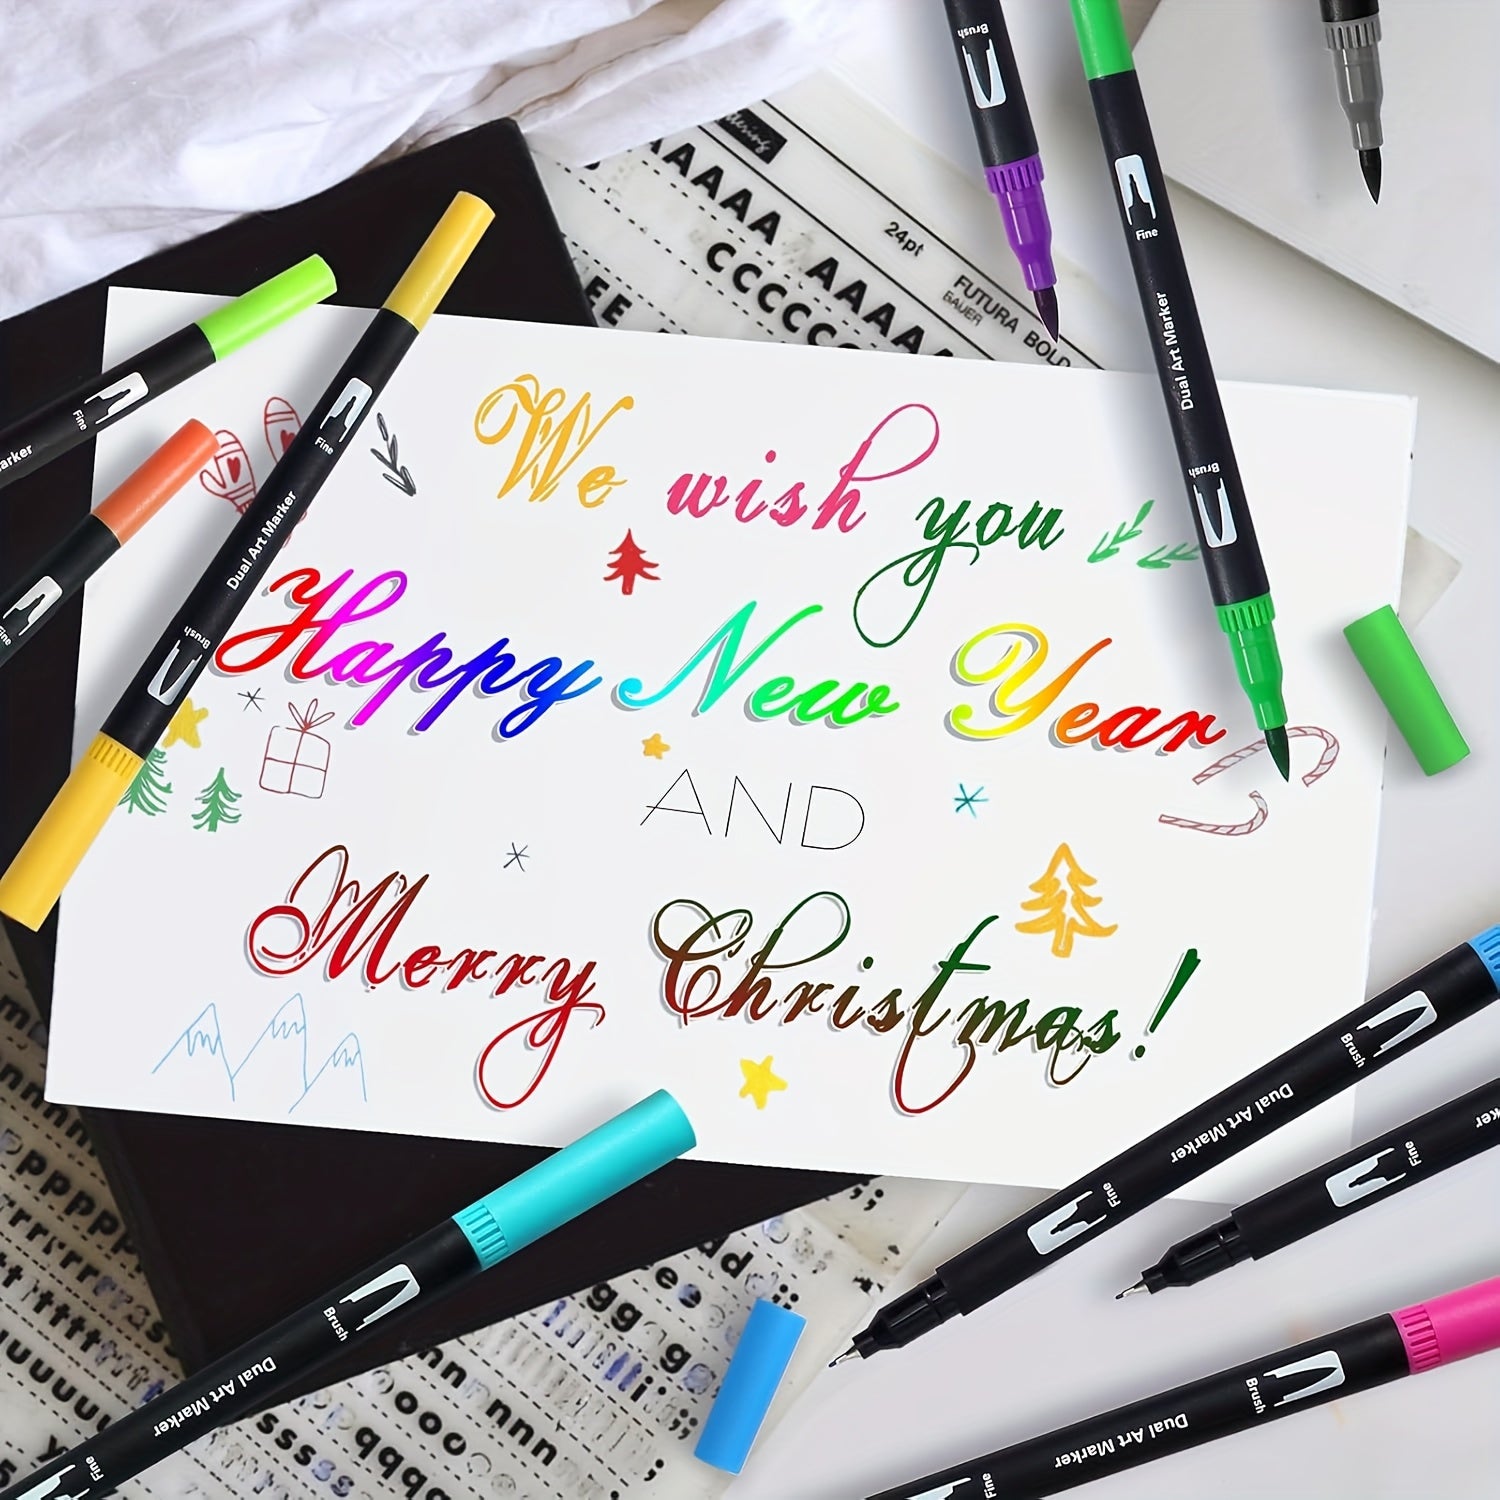 We wish you
Happy New Year
AND
Merry Christmas!
24pt
FUTURA BOLD
BAUER
AAAAA AAAAA
CCCCCC
EE
Brush
Fine
Dual Art Marker
Brush
Fine
arker
Fine
Dual Art Marker
Brush
Fine
Brush
Dual Art Marker
Fine
Brush
Dual Art Marker
Fine
Fine
Brush
Dual Art Marker
Fine